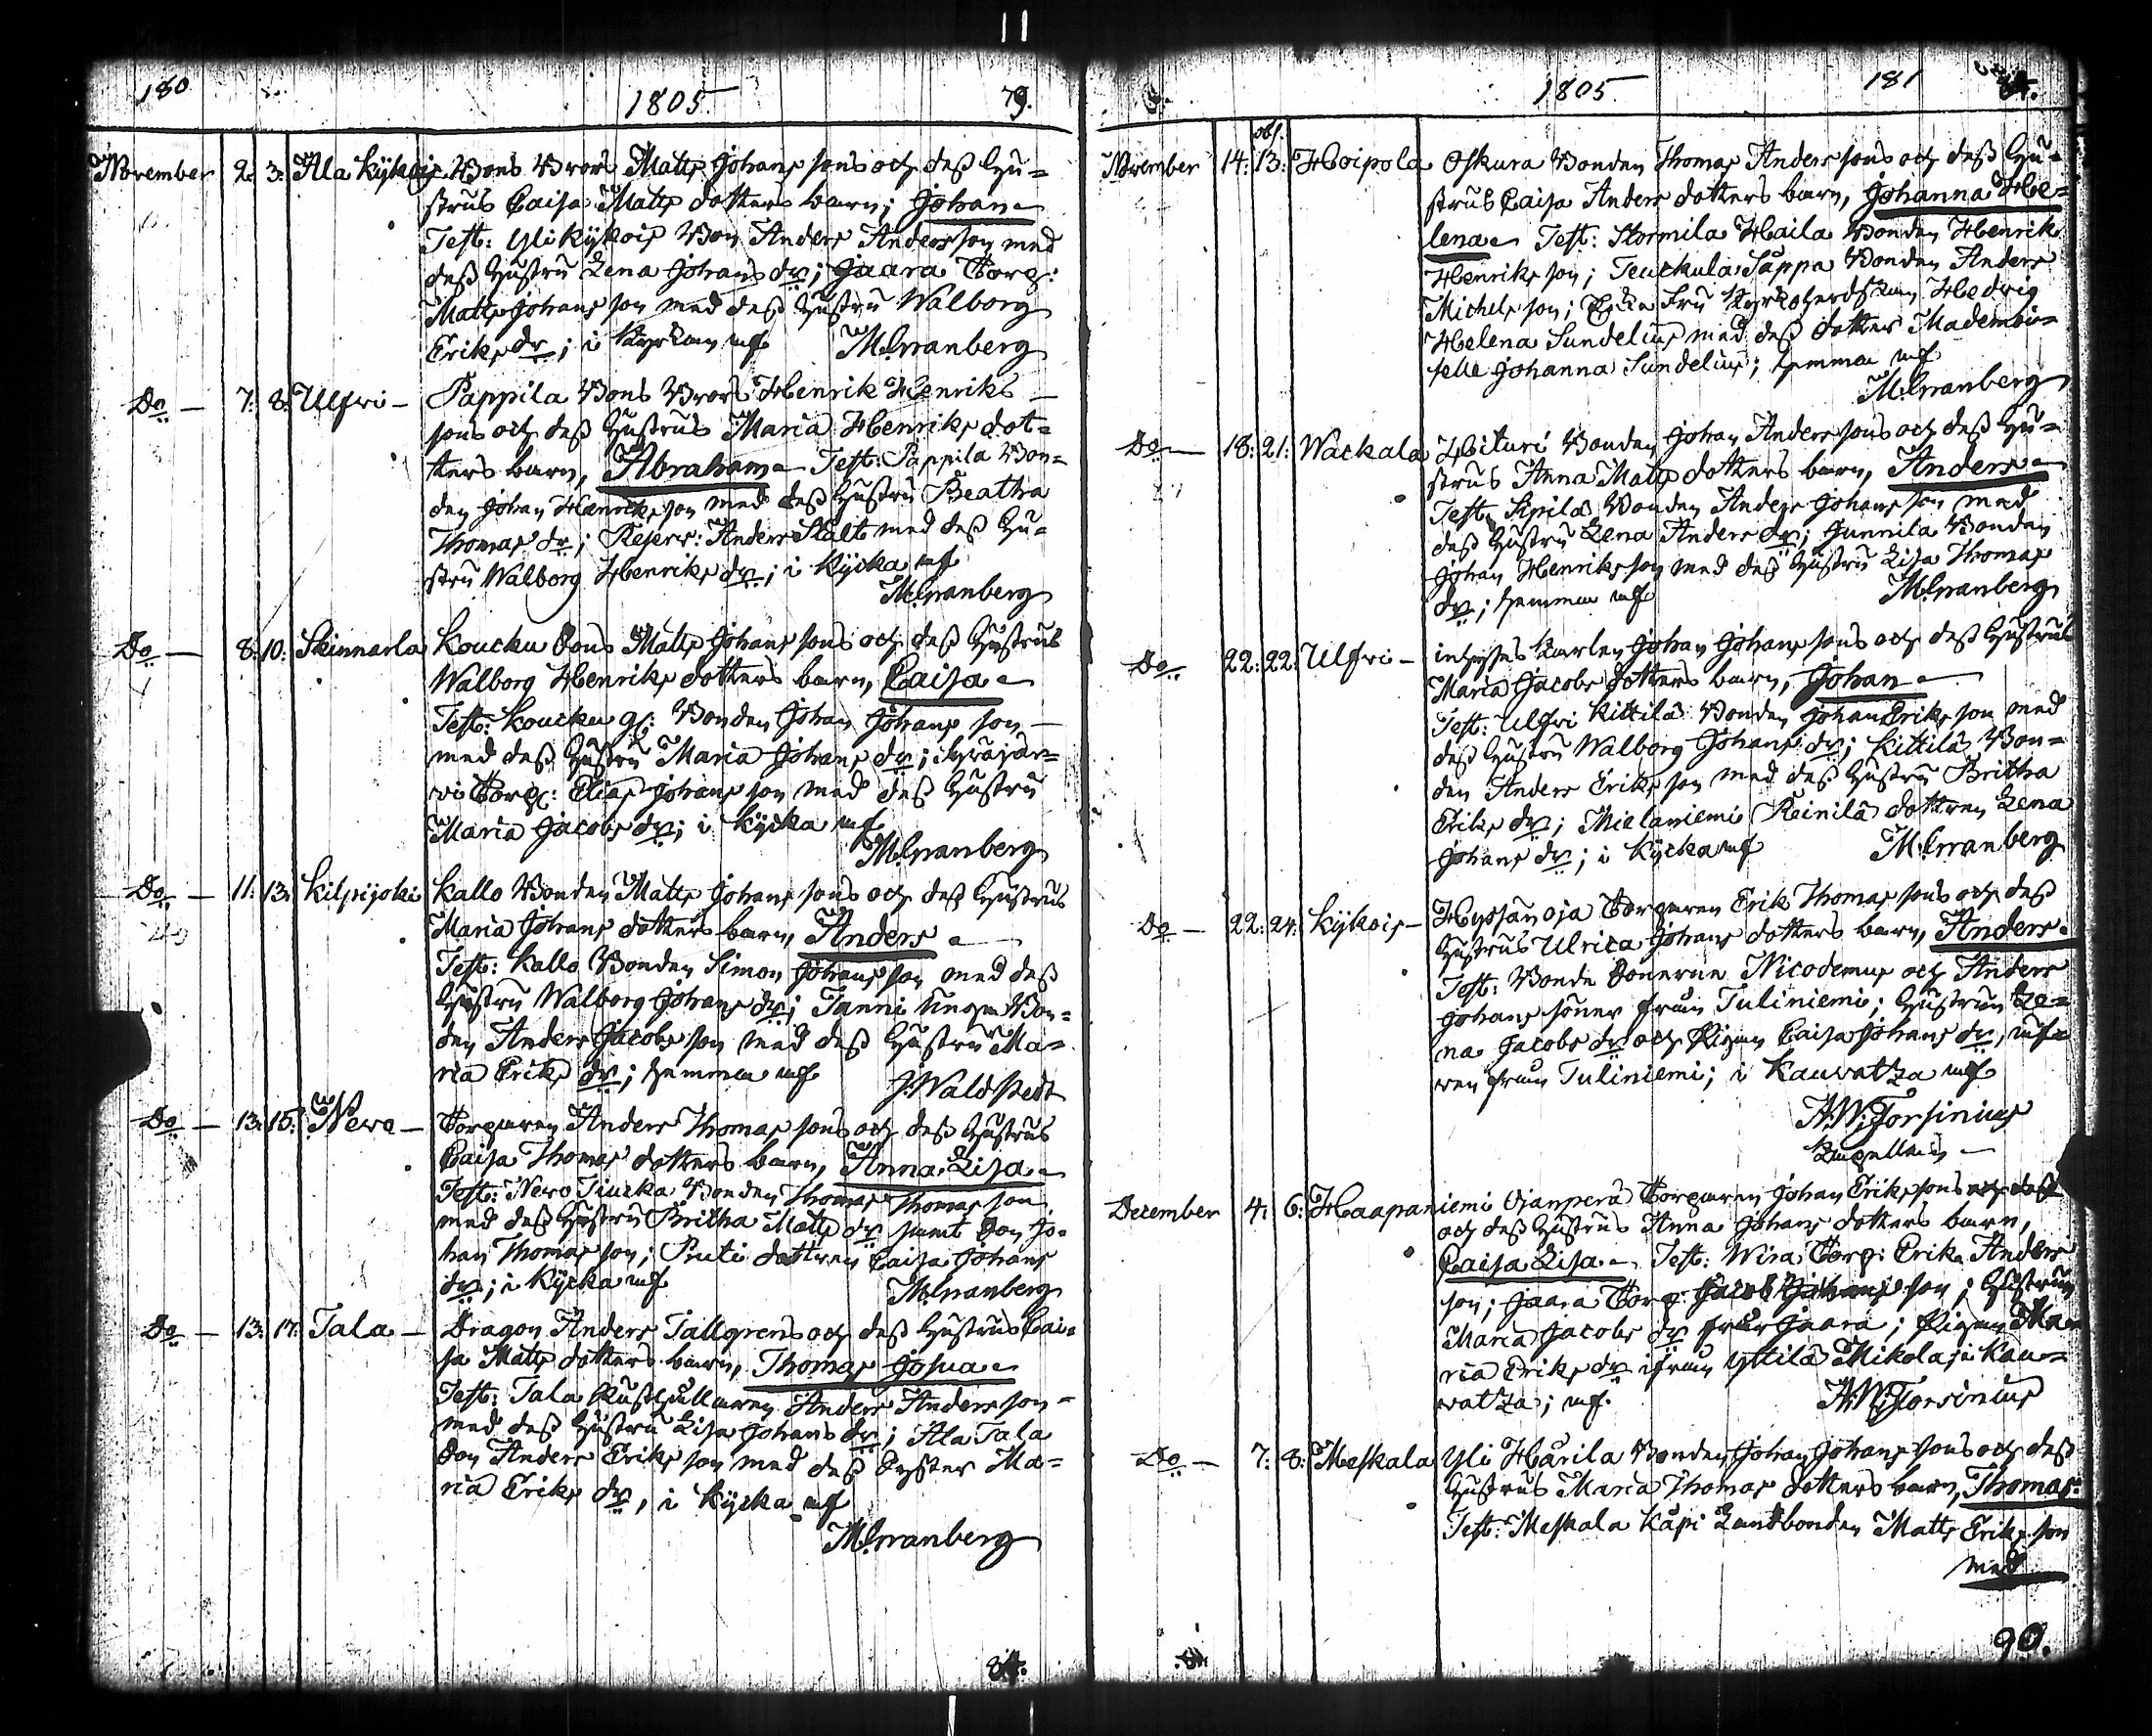 180
1805
79.
November 2: 3: Ala Kÿkois Bons Brors Matts Johans sons och dess Hu=
strus Caisa Matts dotters barn; Johan
Test: Yli Kÿkois Bon Anders Andersson med
dess hustru Lena Johans dr; Jaara Torp:
Matts Johans son med dess hustru Walborg
Eriks dr; i Kyrkan mf M:Granberg
Do 7: 8: Ulfvi Pappila Bons Brors Henrik Henriks
sons och dess hustrus Maria Henriks dot=
ters barn, Abraham Test: Pappila Bon=
den Johan Henriks son med dess hustru Beatha
Thomas dr; Reserv: Anders Stålt med dess Hu=
stru Walborg Henriks dr; i Kÿrka mf
M:Granberg
Do 8: 10: Skinnarla Koucku Sons Matts Johans sons och dess hustrus
Walborg Henriks dotters barn, Caisa
Test: Koucku gl: Bonden Johan Johans son
med dess hustru Maria Johans dr;
vi Torp: Elias Johans son med dess hustru
Maria Jacobs dr; i Kÿrka mf
M:Granberg
Do 11: 13: Kilpijoki Kallo Bonden Matts Johans sons och dess hustrus
Maria Johans dotters barn, Anders
Test: Kallo Bonden Simon Johans son med dess
hustru Walborg Johans dr; Tanni unga Bon=
den Anders Jacobs son med dess hustru Ma=
ria Eriks dr; hemma mf J:Waldstedt
Do 13: 15: Nero Torparen Anders Thomas sons och dess hustrus
Caisa Thomas dotters barn, Anna Lisa
Test: Nero Tiucka Bonden Thomas Thomas son
med dess hustru Britha Matts dr samt Son Jo=
han Thomas son; Pruti dottren Caisa Johans
dr; i Kÿrka mf M:Granberg
Do 13: 17: Tala Dragon Anders Tallgrens och dess hustrus Cai=
sa Matts dotters barn, Thomas Josua
Test: Tala Rusthållaren Anders Anders son
med dess hustru Lisa Johans dr; Ala Tala
Son Anders Eriks son med dess Syster Ma=
ria Eriks dr, i Kÿrka mf
M:Granberg
1805
181
November 14: 13: Hoipola Oskura Bonden Thomas Anders sons och dess Hu=
strus Caisa Anders dotters barn, Johanna He=
lena Test: Stormila Haila Bonden Henrik
Henriks son; Teuckula Sappa Bonden Anders
Michels son; Enke Fru Kyrkoherdskan Hedvig
Helena Sundelius med dess dotter Mademoi=
selle Johanna Sundelius; hemma mf
M:Granberg
Do 18: 21: Wackala Hoituri Bonden Johan Anders sons och dess Hu=
strus Anna Matts dotters barn, Anders
Test: Sipilä Bonden Anders Johans son med
dess hustru Lena Anders dr; Junnila Bonden
Johan Henriks son med dess hustru Lisa Thomas
dr; hemma mf M:Granberg
Do 22: 22: Ulfvi inhyses karlen Johan Johans sons och dess hustrus
Maria Jacobs dotters barn, Johan
Test: Ulfvi Kittilä Bonden Johan Eriks son med
dess hustru Walborg Johans dr; Kittilä Bon=
den Anders Eriks son med dess hustru Britha
Eriks dr; Mielaniemi Reinilä dottren Lena
Johans dr; i Kÿrka mf M:Granberg
Do 22: 24: Kÿkois Torparen Erik Thomas sons och dess
hustrus Ulrica Johans dotters barn, Anders
Test: Bonde Sönerne Nicodemus och Anders
Johans söner från Tuliniemi; hustrun Le=
na Jacobs dr och Pigan Caisa Johans dr,
ven från Tuliniemi; i Kauvatza mf
A:W:Forsinius
Kapellan
December 4: 6: Haapaniemi Ojanperä Torparen Johan Eriks sons och dess
och dess hustrus Anna Johans dotters barn,
Caisa Lisa Test: Wira Torp: Erik Anders
son; Jaara Torp: Jacob Johans son; hustrun
Maria Jacobs dr från Jaara; Pigan Ma=
ria Eriks dr ifrån Yttilä Mikola; i Kau=
vatza; mf. A:W:Forsinius
Do 7: 8: Meskala Yli Härilä Bonden Johan Johans sons och dess
hustrus Maria Thomas dotters barn, Thomas
Test: Meskala Käpi Landbonden Matts Eriks son
med
90.